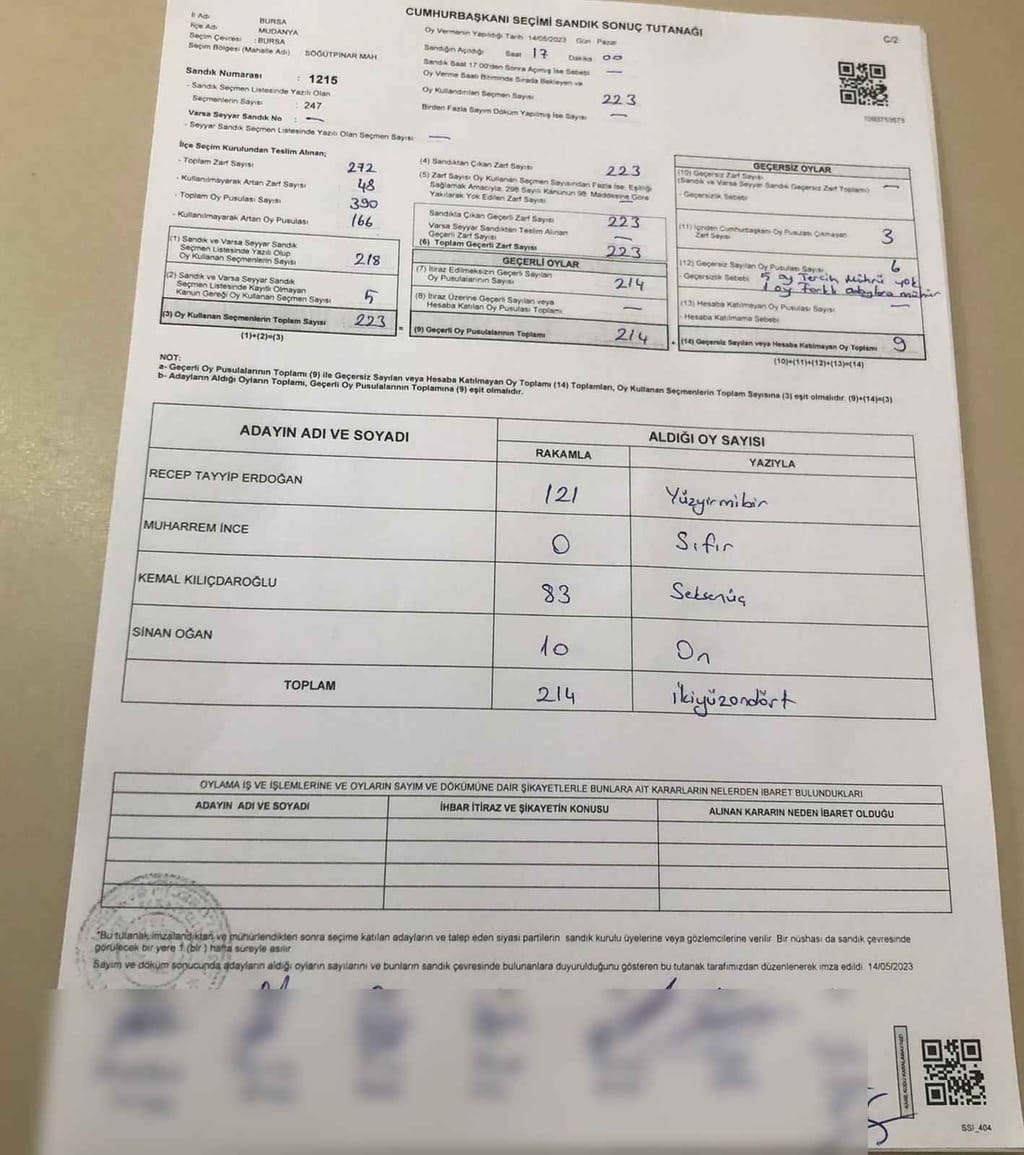 CUMHURBAŞKANI SEÇİMİ SANDIK SONUÇ TUTANAĞI
C/2
İl Adı BURSA
İlçe Adı MUDANYA
Seçim Çevresi : BURSA
Seçim Bölgesi (Mahalle Adı) SÖĞÜTPINAR MAH
Sandık Numarası : 1215
- Sandık Seçmen Listesinde Yazılı Olan
Seçmenlerin Sayısı : 247
Varsa Seyyar Sandık No : —
- Seyyar Sandık Seçmen Listesinde Yazılı Olan Seçmen Sayısı —
Oy Vermenin Yapıldığı Tarih 14/05/2023 Gün Pazar
Sandığın Açıldığı Saat 17 Dakika 00
Sandık Saat 17.00'den Sonra Açmış İse Sebebi —
Oy Verme Saati Bitiminde Sırada Bekleyen ve
Oy Kullandırılan Seçmen Sayısı 223
Birden Fazla Sayım Döküm Yapılmış İse Sayısı —
İlçe Seçim Kurulundan Teslim Alınan;
- Toplam Zarf Sayısı 272
- Kullanılmayarak Artan Zarf Sayısı 48
- Toplam Oy Pusulası Sayısı 390
- Kullanılmayarak Artan Oy Pusulası 166
(1) Sandık ve Varsa Seyyar Sandık
Seçmen Listesinde Yazılı Olup
Oy Kullanan Seçmenlerin Sayısı 218
(2) Sandık ve Varsa Seyyar Sandık
Seçmen Listesinde Kayıtlı Olmayan
Kanun Gereği Oy Kullanan Seçmen Sayısı 5
(3) Oy Kullanan Seçmenlerin Toplam Sayısı 223
(1)+(2)=(3)
(4) Sandıktan Çıkan Zarf Sayısı 223
(5) Zarf Sayısı Oy Kullanan Seçmen Sayısından Fazla İse, Eşitliği
Sağlamak Amacıyla, 298 Sayılı Kanunun 98. Maddesine Göre
Yakılarak Yok Edilen Zarf Sayısı —
Sandıkta Çıkan Geçerli Zarf Sayısı 223
Varsa Seyyar Sandıktan Teslim Alınan
Geçerli Zarf Sayısı —
(6) Toplam Geçerli Zarf Sayısı 223
GEÇERLİ OYLAR
(7) İtiraz Edilmeksizin Geçerli Sayılan
Oy Pusulalarının Sayısı 214
(8) İtiraz Üzerine Geçerli Sayılan veya
Hesaba Katılan Oy Pusulası Toplamı —
= (9) Geçerli Oy Pusulalarının Toplamı 214
GEÇERSİZ OYLAR
(10) Geçersiz Zarf Sayısı
(Sandık ve Varsa Seyyar Sandık Geçersiz Zarf Toplamı) —
- Geçersizlik Sebebi
(11) İçinden Cumhurbaşkanı Oy Pusulası Çıkmayan
Zarf Sayısı 3
(12) Geçersiz Sayılan Oy Pusulası Sayısı 6
- Geçersizlik Sebebi 5 oy Tercih mührü yok
1 oy Farklı adaylara mühür
(13) Hesaba Katılmayan Oy Pusulası Sayısı —
- Hesaba Katılmama Sebebi
+ (14) Geçersiz Sayılan veya Hesaba Katılmayan Oy Toplamı 9
(10)+(11)+(12)+(13)=(14)
NOT:
a- Geçerli Oy Pusulalarının Toplamı (9) ile Geçersiz Sayılan veya Hesaba Katılmayan Oy Toplamı (14) Toplamları, Oy Kullanan Seçmenlerin Toplam Sayısına (3) eşit olmalıdır. (9)+(14)=(3)
b- Adayların Aldığı Oyların Toplamı, Geçerli Oy Pusulalarının Toplamına (9) eşit olmalıdır.
ADAYIN ADI VE SOYADI ALDIĞI OY SAYISI
RAKAMLA YAZIYLA
RECEP TAYYİP ERDOĞAN 121 Yüzyirmibir
MUHARREM İNCE 0 Sıfır
KEMAL KILIÇDAROĞLU 83 Seksenüç
SİNAN OĞAN 10 On
TOPLAM 214 İkiyüzondört
OYLAMA İŞ VE İŞLEMLERİNE VE OYLARIN SAYIM VE DÖKÜMÜNE DAİR ŞİKAYETLERLE BUNLARA AİT KARARLARIN NELERDEN İBARET BULUNDUKLARI
ADAYIN ADI VE SOYADI İHBAR İTİRAZ VE ŞİKAYETİN KONUSU ALINAN KARARIN NEDEN İBARET OLDUĞU
*Bu tutanak imzalandıktan ve mühürlendikten sonra seçime katılan adayların ve talep eden siyasi partilerin sandık kurulu üyelerine veya gözlemcilerine verilir. Bir nüshası da sandık çevresinde
görülecek bir yere 1 (bir) hafta süreyle asılır.
Sayım ve döküm sonucunda adayların aldığı oyların sayılarını ve bunların sandık çevresinde bulunanlara duyurulduğunu gösteren bu tutanak tarafımızdan düzenlenerek imza edildi. 14/05/2023
SSI_404